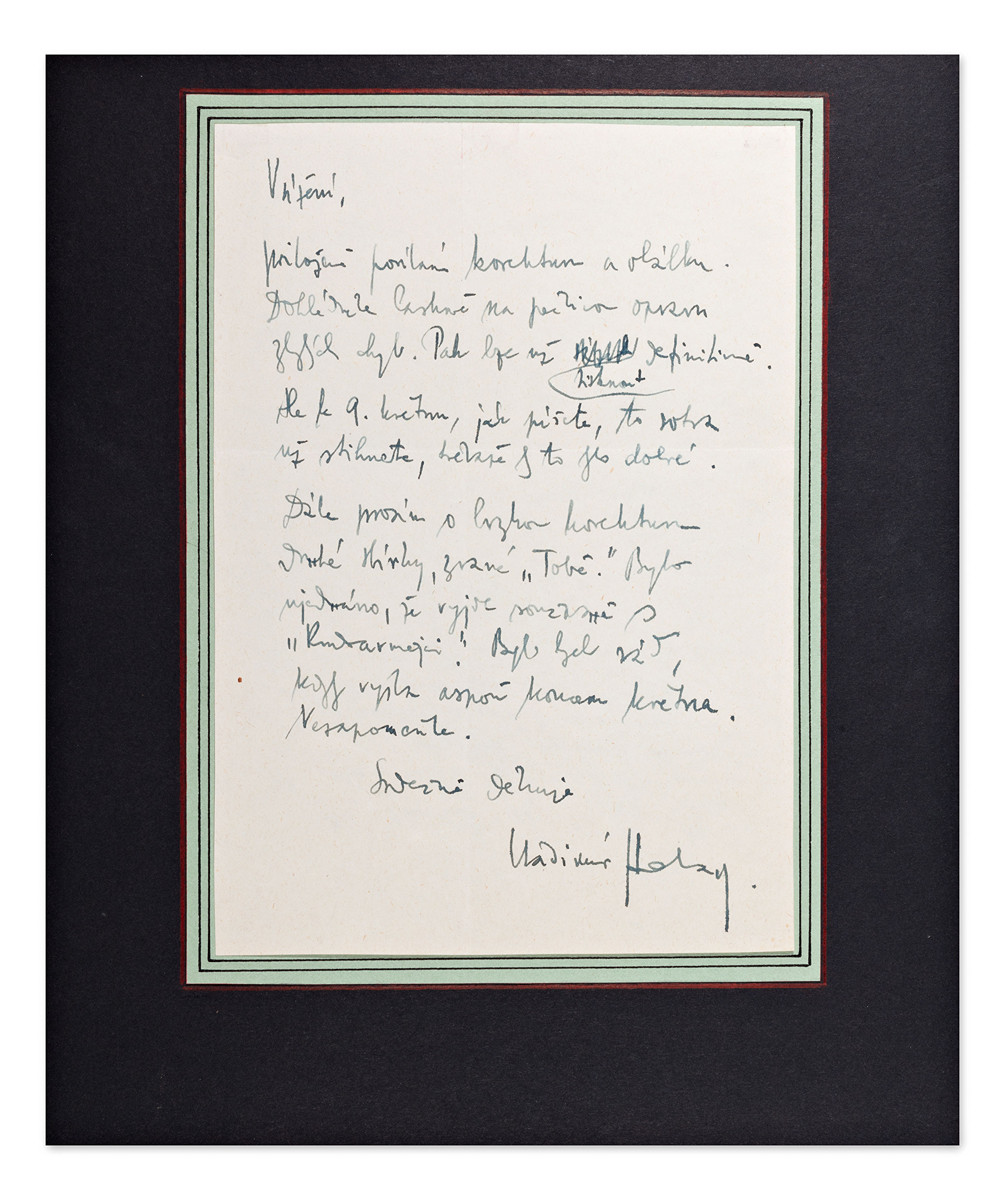 Vážení,
přiloženě posílám korekturu a obálku.
Dohlédněte laskavě na pečlivou opravu
zlých chyb. Pak lze už definitivně.
tisknout
Ale k 9. květnu, jak píšete, to sotva
už stihnete, třebaže by to bylo dobré.
Dále prosím o brzkou korekturu
druhé sbírky, zvané „Tobě." Bylo
ujednáno, že vyjde současně s
„Rudoarmejci". Byl bych rád,
kdyby vyšla aspoň koncem května.
Nezapomeňte.
Srdečně děkuje
Vladimír Holan.